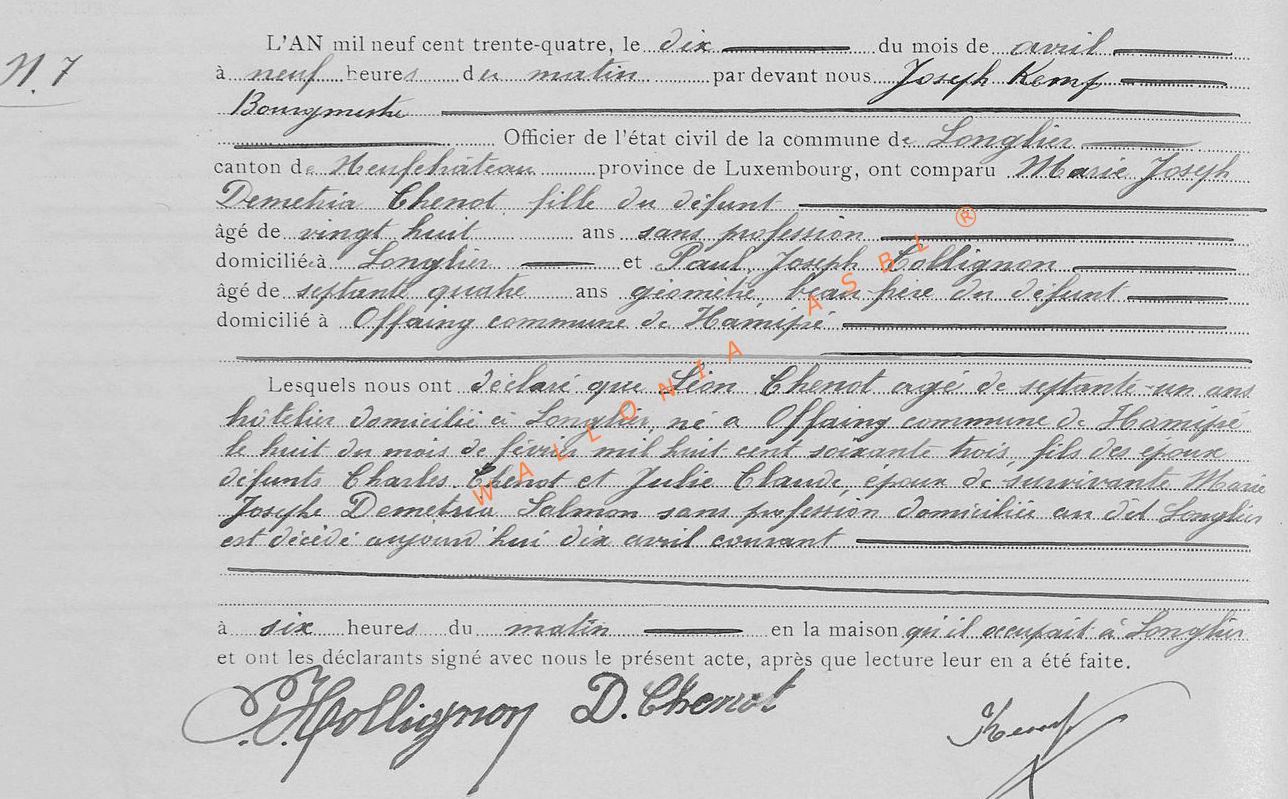 N. 7
L'AN mil neuf cent trente-quatre, le dix du mois de avril
à neuf heures du matin par devant nous Joseph Kemp
Bourgmestre
Officier de l'état civil de la commune de Longlier
canton de Neufchâteau province de Luxembourg, ont comparu Marie Joseph
Demetria Chenot fille du défunt
âgé de vingt huit ans sans profession
domiciliée à Longlier et Paul Joseph Collignon
âgé de septante quatre ans géomètre, beau frère du défunt
domicilié à Offaing commune de Hamipré
Lesquels nous ont déclaré que Léon Chenot agé de septante-un ans
hôtelier domicilié à Longlier, né à Offaing commune de Hamipré
le huit du mois de février mil huit cent soixante trois, fils des époux
défunts Charles Chenot et Julie Claude, époux de survivante Marie
Josephe Demetria Salmon sans profession domiciliée au dit Longlier
est décédé aujourd'hui dix avril courant
à six heures du matin en la maison qu'il occupait à Longlier
et ont les déclarants signé avec nous le présent acte, après que lecture leur en a été faite.
P. J. Collignon D. Chenot Kemp
WALLONIA ASBL ®